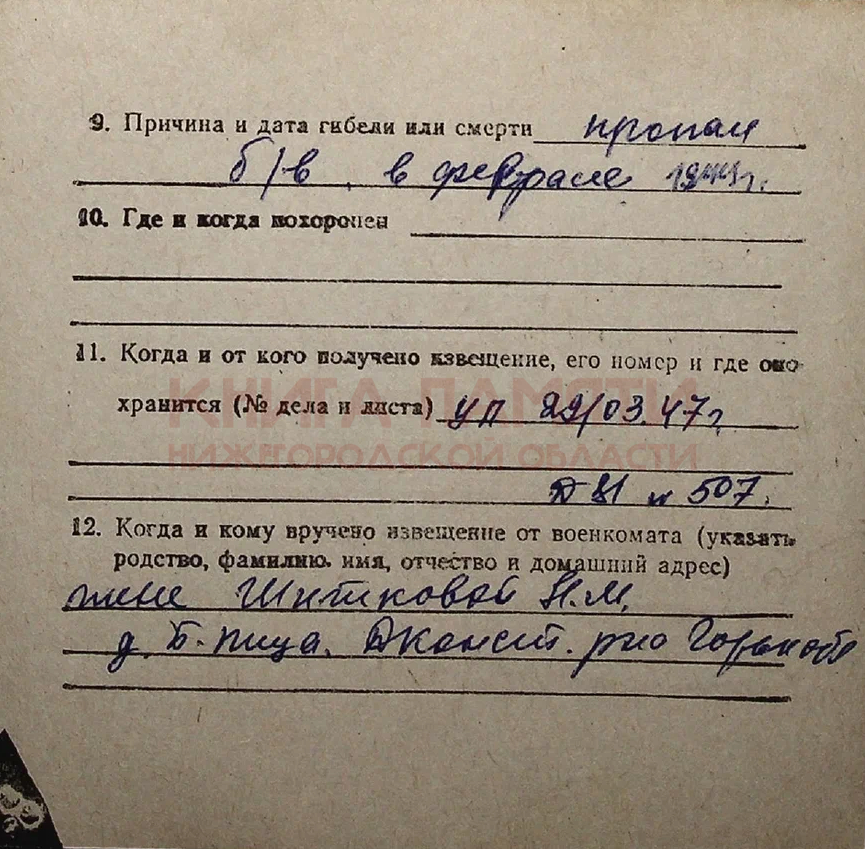 9. Причина и дата гибели или смерти пропал
б/в, в феврале 1944 г.
10. Где и когда похоронен
11. Когда и от кого получено извещение, его номер и где оно
КНИГА ПАМЯТИ
хранится (№ дела и листа) УП 29/03.47 г.
НИЖЕГОРОДСКОЙ ОБЛАСТИ
Д 81 л 507.
12. Когда и кому вручено извещение от военкомата (указать
родство, фамилию, имя, отчество и домашний адрес)
жене Шитиковой Н.М.
д. Б. Пица. Дконст. р-на Горьков